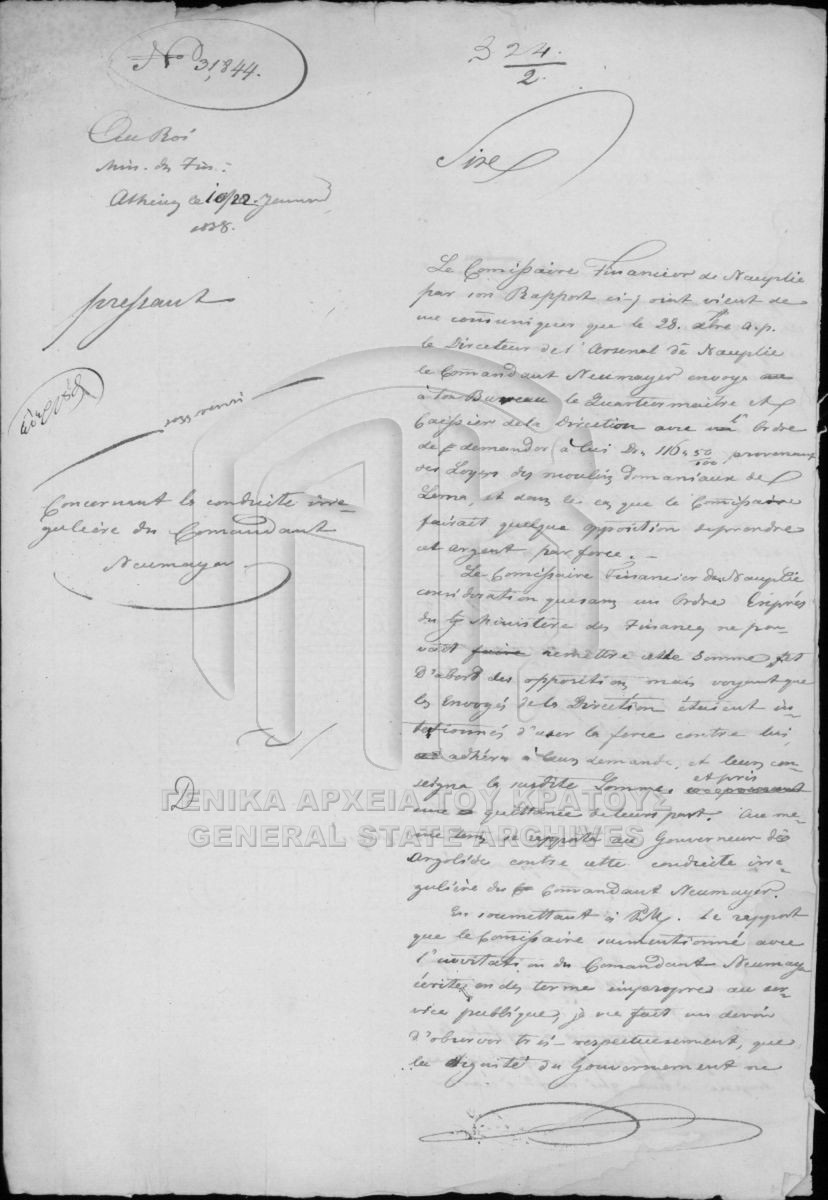 No 31,844.
3 24.
2.
Au Roi
Min. des Fin.:
Athènes le 10/22 Janvier
1838.
Sire
pressant
Concernant la conduite irré-
gulière du Comandant
Neumayer
D
Le Comissaire Financier de Nauplie
par son Rapport ci-joint vient de
me communiquer que le 28. Xbre a.p.
le Directeur de l'Arsenal de Nauplie
le Comandant Neumayer envoya
à son Bureau le Quartiermaitre et
Caissier de la Direction avec un Ordre
de demander à lui Dr. 116 50/100 provenant
des Loyers des moulins domaniaux de
Lerna, et dans le cas que le Comissaire
fairait quelque opposition de prendre
cet argent par force. -
Le Comissaire Financier de Nauplie
considération que sans un Ordre Exprès
du Ministère des Finances ne pou-
vait faire remettre cette Somme, fit
D'abord des oppositions mais voyant que
les Envoyés de la Direction étaient in-
tationnés d'user la force contre lui,
adhéra à leur demande, et leur con-
seigna la susdite Somme, et pris
une quittance de leur part. Au me-
me tems se rapporta au Gouverneur de
Argolide contre cette conduite irré-
gulière du Comandant Neumayer.
En soumettant à V.M. le rapport
que le Comissaire sumentionné avec
l'invitation du Comandant Neumayer
écrite en des terme impropres au ser-
vice publique, je me fait un devoir
d'observer très-respectueusement, que
la dignité du Gouvernement ne
ΓΕΝΙΚΑ ΑΡΧΕΙΑ ΤΟΥ ΚΡΑΤΟΥΣ
GENERAL STATE ARCHIVES